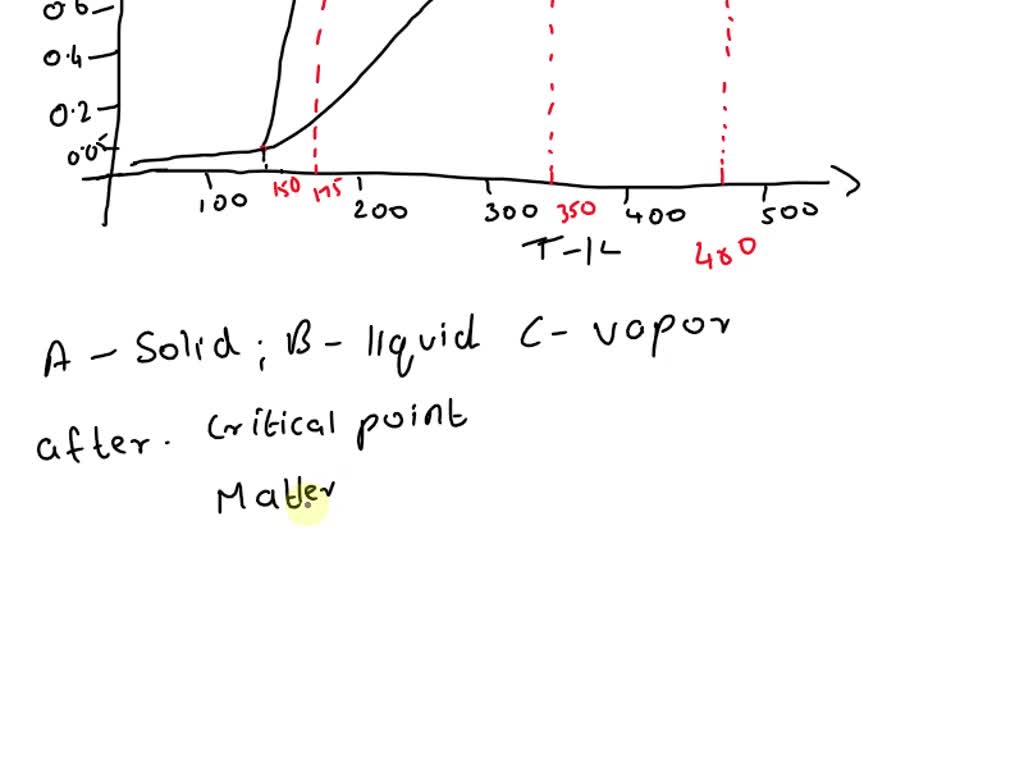 0.6
0.4
0.2
0.05
100 150 175 200 300 350 400 500
T-K 480
A - Solid ; B - liquid C - vapor
after. Critical point
Matter